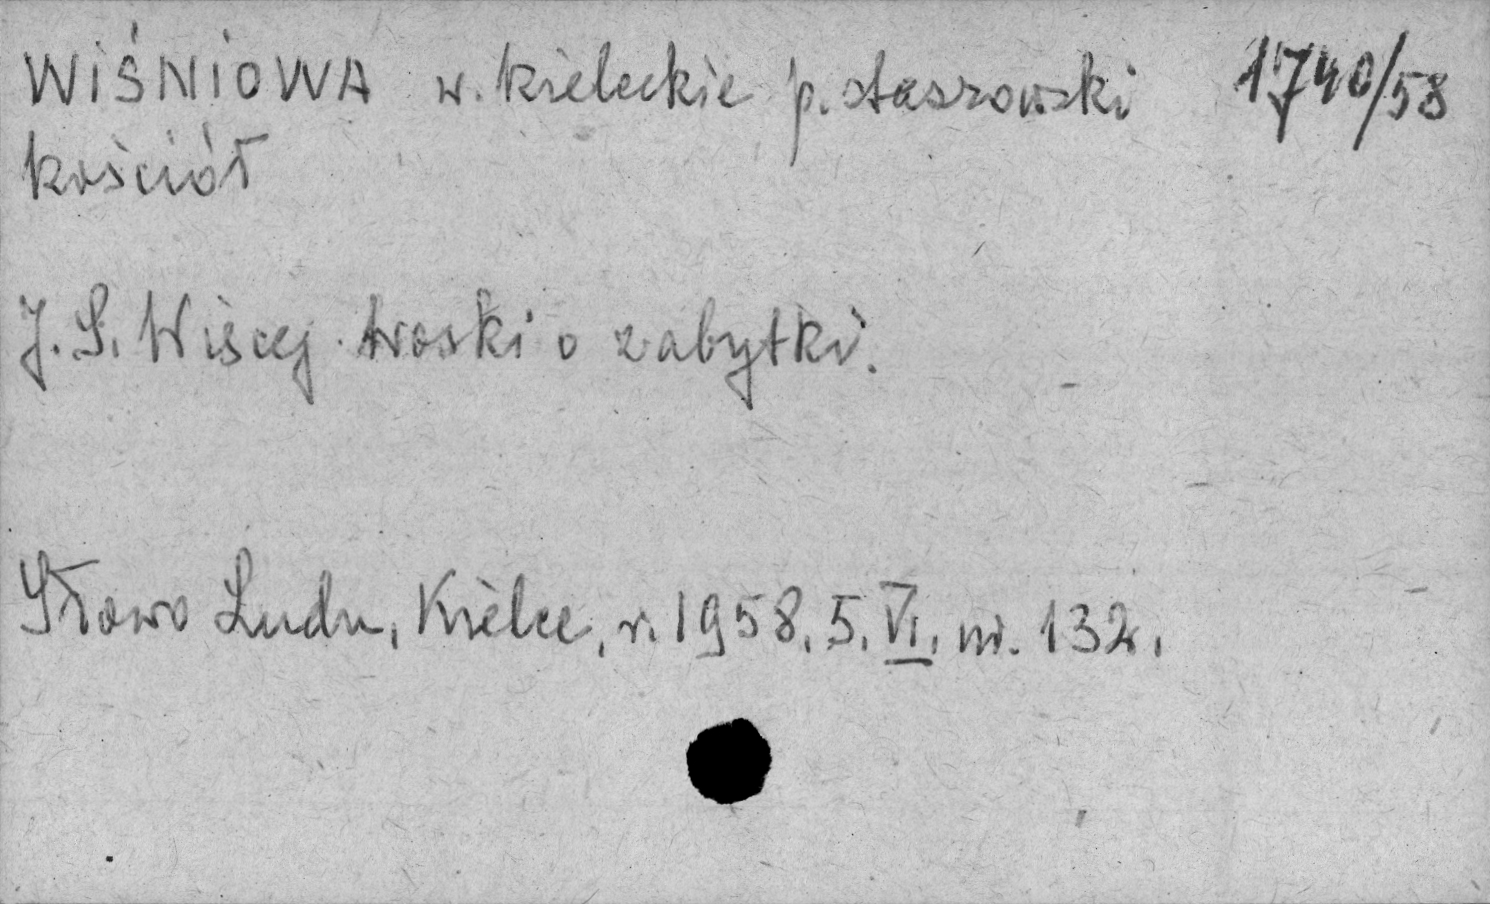 WIŚNIOWA w. kieleckie p. staszowski 1740/58
kościół
J. S. Więcej troski o zabytki.
Słowo Ludu, Kielce, r. 1958. 5. VI. nr. 132.